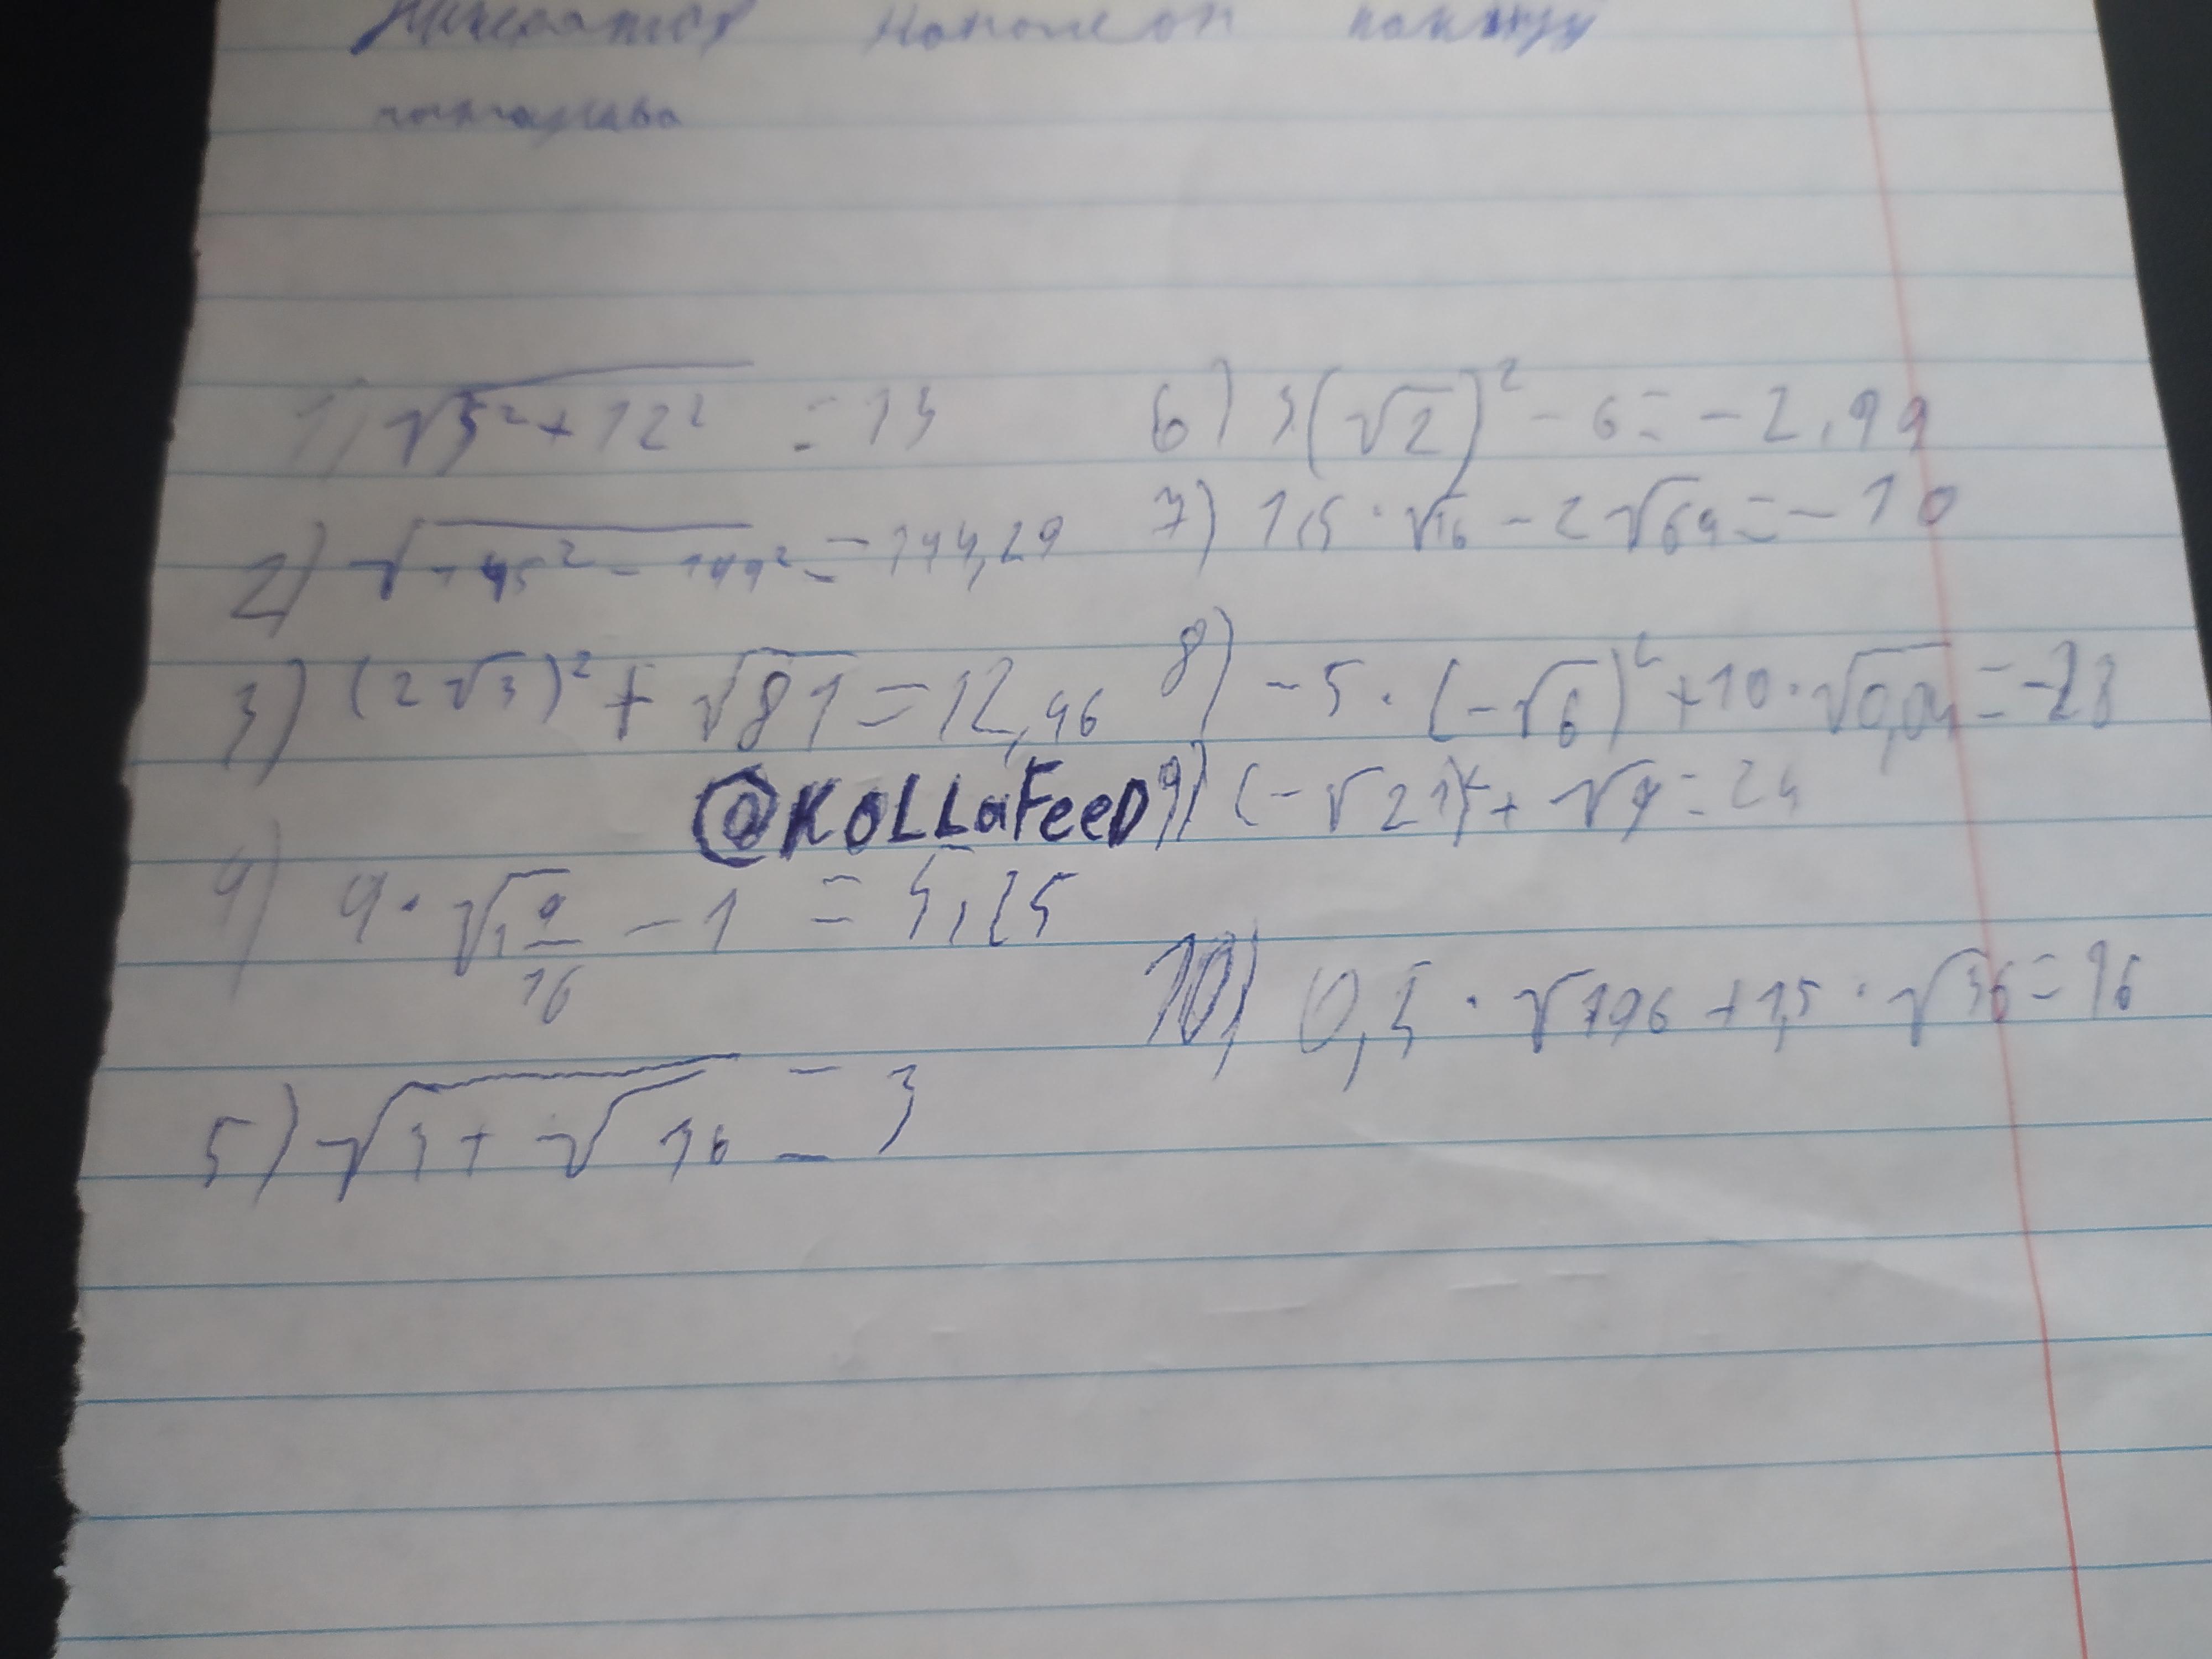 1) √5² + 12² = 13
2) √145² - 144² = 144,29
3) (2√3)² + √81 = 12,46
@KoLLaFeeD
4) 9 · √1 9/16 - 1 = 5,25
5) √5 + √16 = 3
6) 3(√2)² - 6 = -2,99
7) 1,5 · √16 - 2√64 = -10
8) -5 · (-√6)² + 10 · √0,04 = -28
9) (-√21)² + √9 = 24
10) 0,5 · √196 + 1,5 · √36 = 16